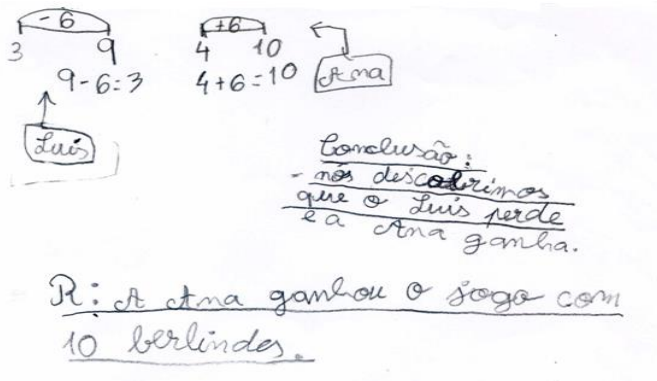 - 6
3 9
9 - 6 = 3
Luís
+ 6
4 10
4 + 6 = 10
Ana
Conclusão:
- nós descobrimos
que o Luís perde
e a Ana ganha.
R: A Ana ganhou o jogo com
10 berlindes.